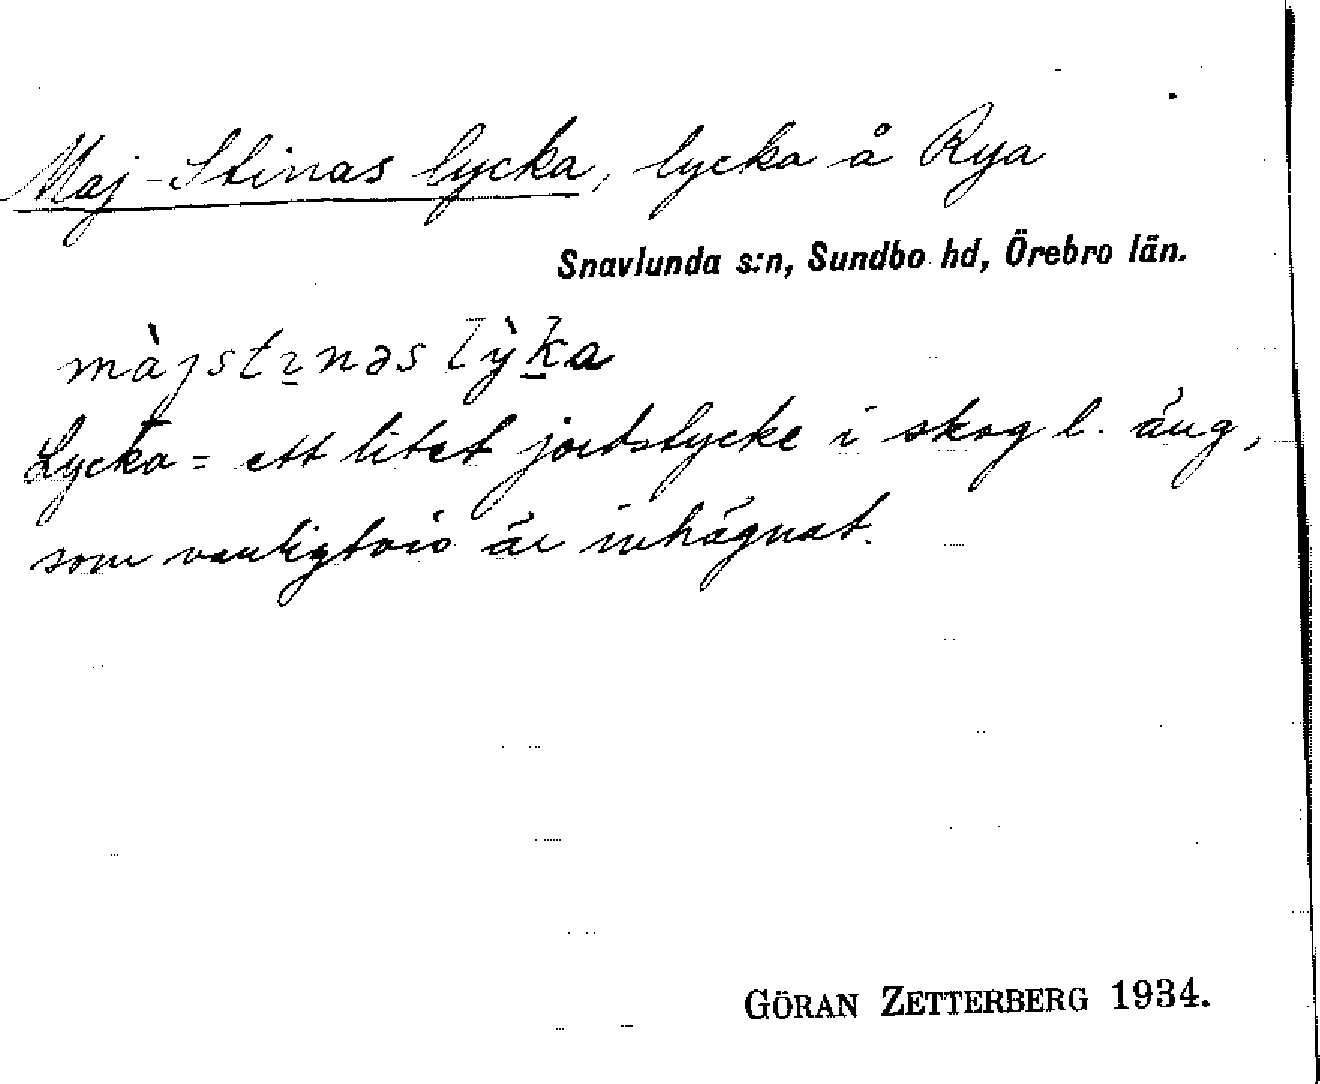 Maj-Stinas lycka, lycka å Rya
Snavlunda s:n, Sundbo hd, Örebro län.
màjstɪ̱nəs lỳḵa
Lycka = ett litet jordstycke i skog l. äng,
som vanligtvis är inhägnat.
GÖRAN ZETTERBERG 1934.